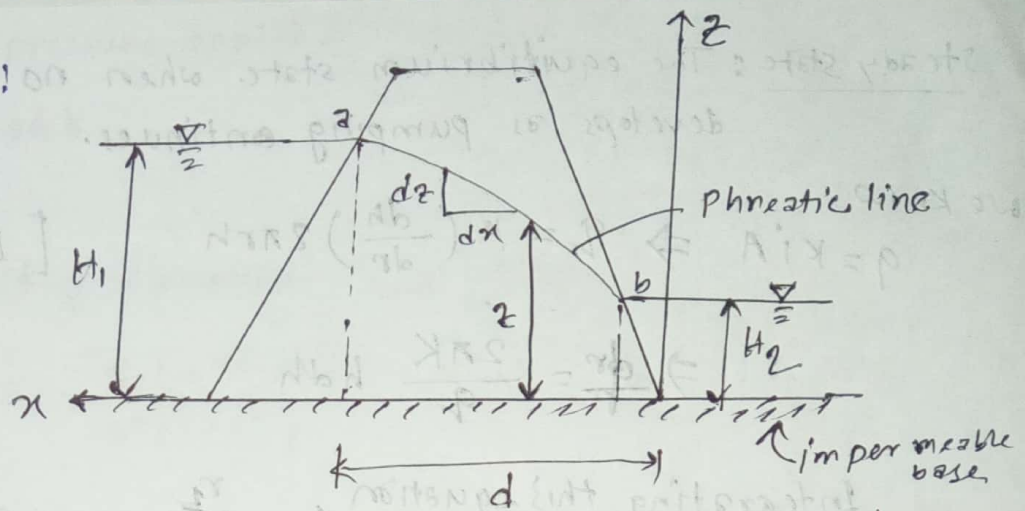 !
z
a
dz
dx
Phreatic line
H₁
z
b
H₂
x
d
impermeable
base